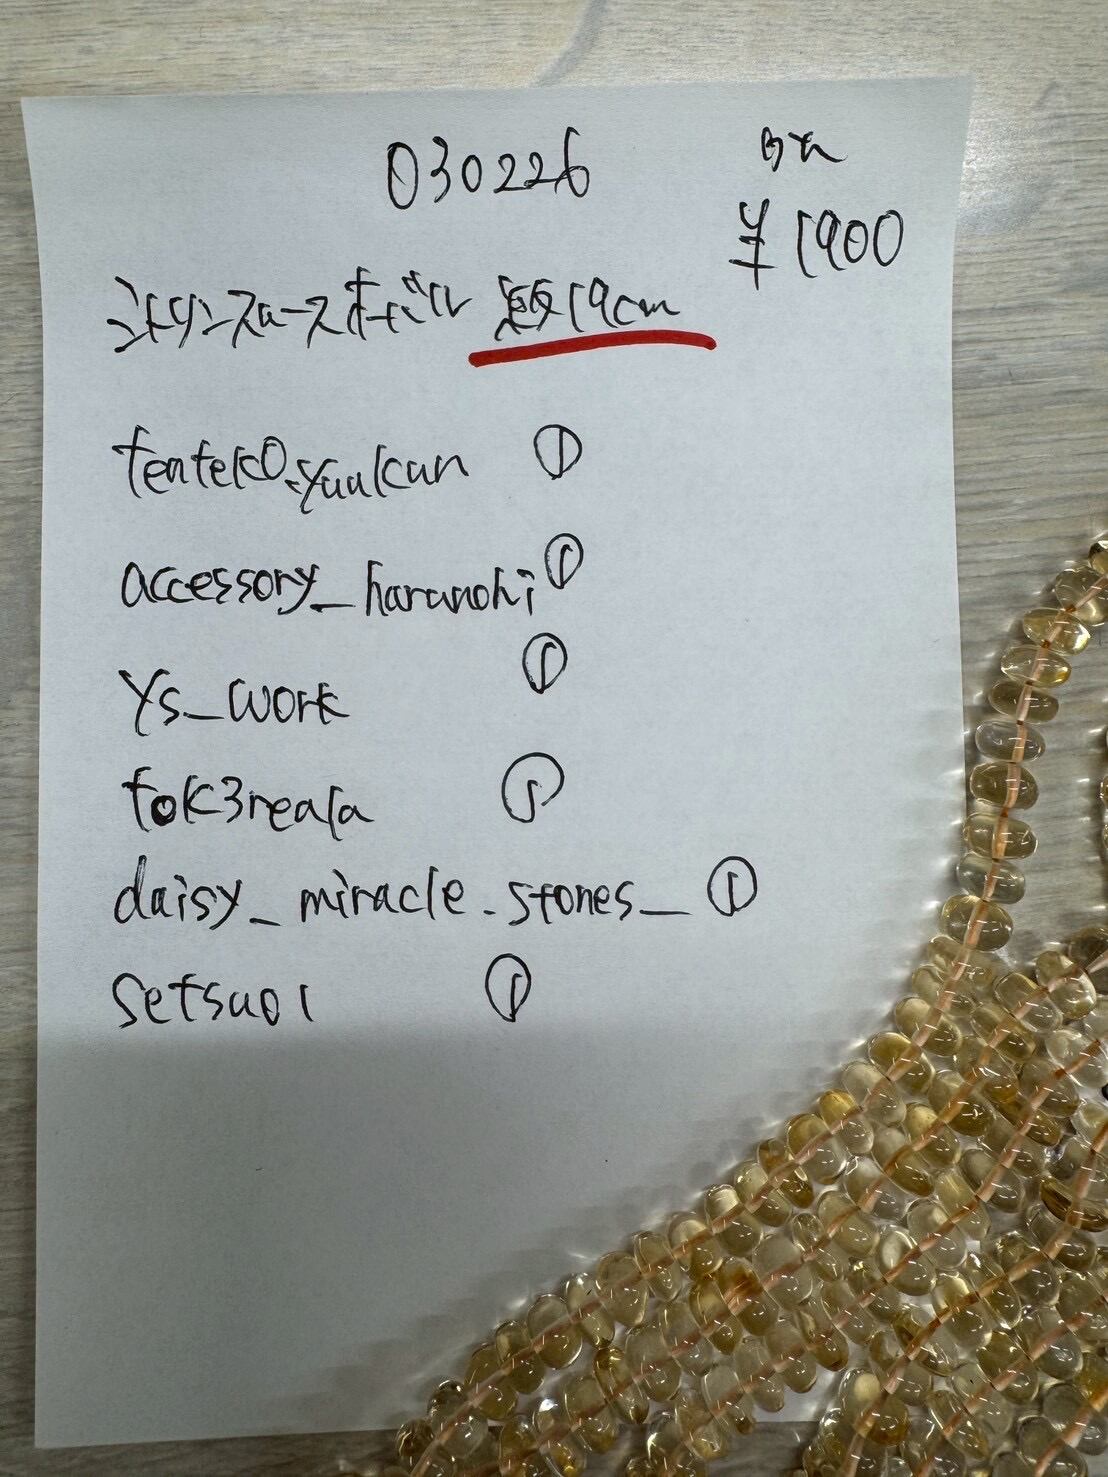 030226
¥1900
シトリンスムースオーバル 約19cm
tenteko.yuukun ①
accessory_haranohi ①
ys_work ①
tok3reala ①
daisy_miracle.stones_ ①
setsuo1 ①